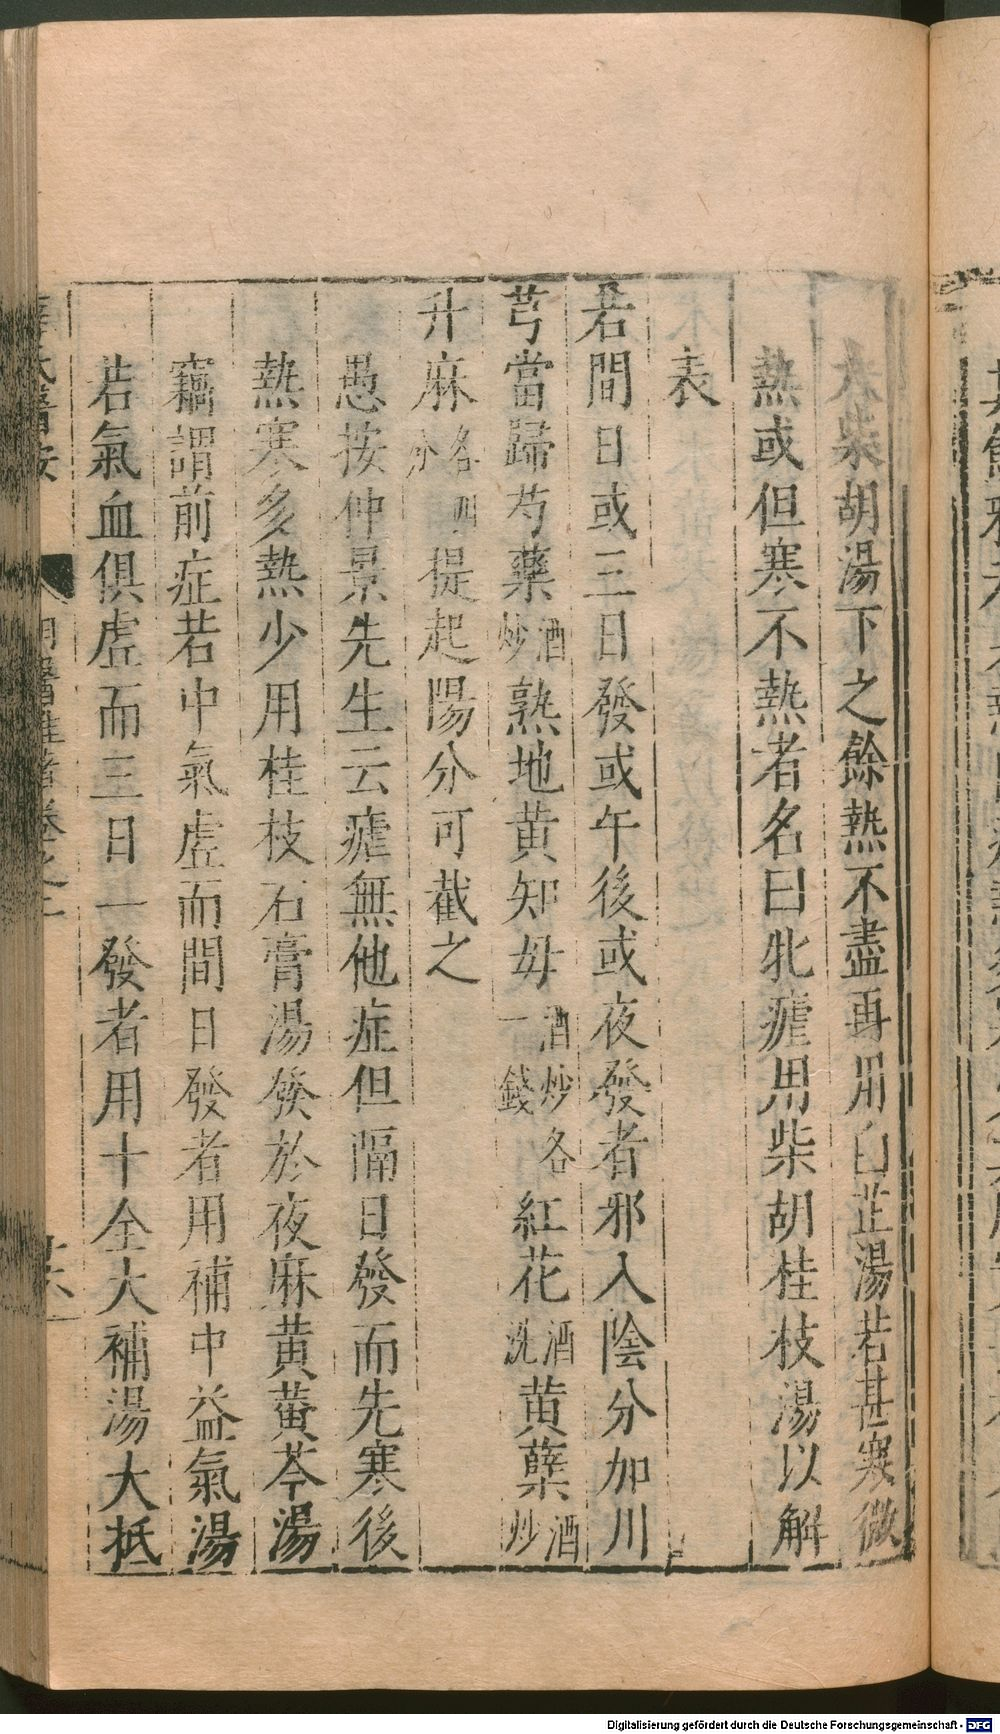 大柴胡湯下之餘熱不盡再用白芷湯若甚寒微
熱或但寒不熱者名曰牝瘧用柴胡桂枝湯以解
表
若間日或三日發或午後或夜發者邪入陰分加川
芎當歸芍藥酒炒熟地黄知母酒炒各一錢紅花酒洗黄蘗酒炒
升麻各四分提起陽分可截之
愚按仲景先生云瘧無他症但隔日發而先寒後
熱寒多熱少用桂枝石膏湯發於夜麻黄黄芩湯
竊謂前症若中氣虚而間日發者用補中益氣湯
若氣血俱虚而三日一發者用十全大補湯大抵
明醫雜著卷之二
Digitalisierung gefördert durch die Deutsche Forschungsgemeinschaft - DFG